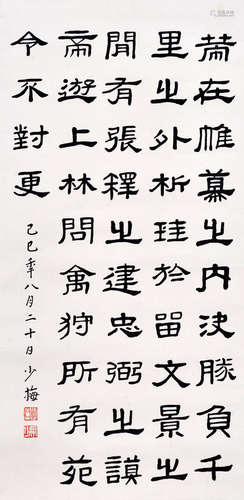 常在帷幕之内决勝負千
里之外析珪於留文景之
閒有張釋之建忠弼之謨
帝遊上林問禽狩所有苑
令不對更
己巳年八月二十日少梅